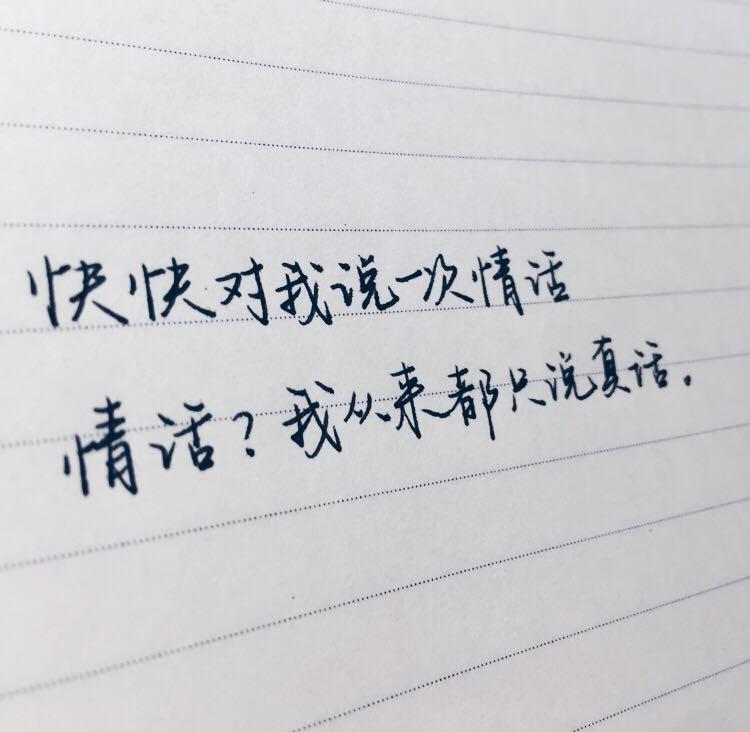 快快对我说一次情话
情话？我从来都只说真话.